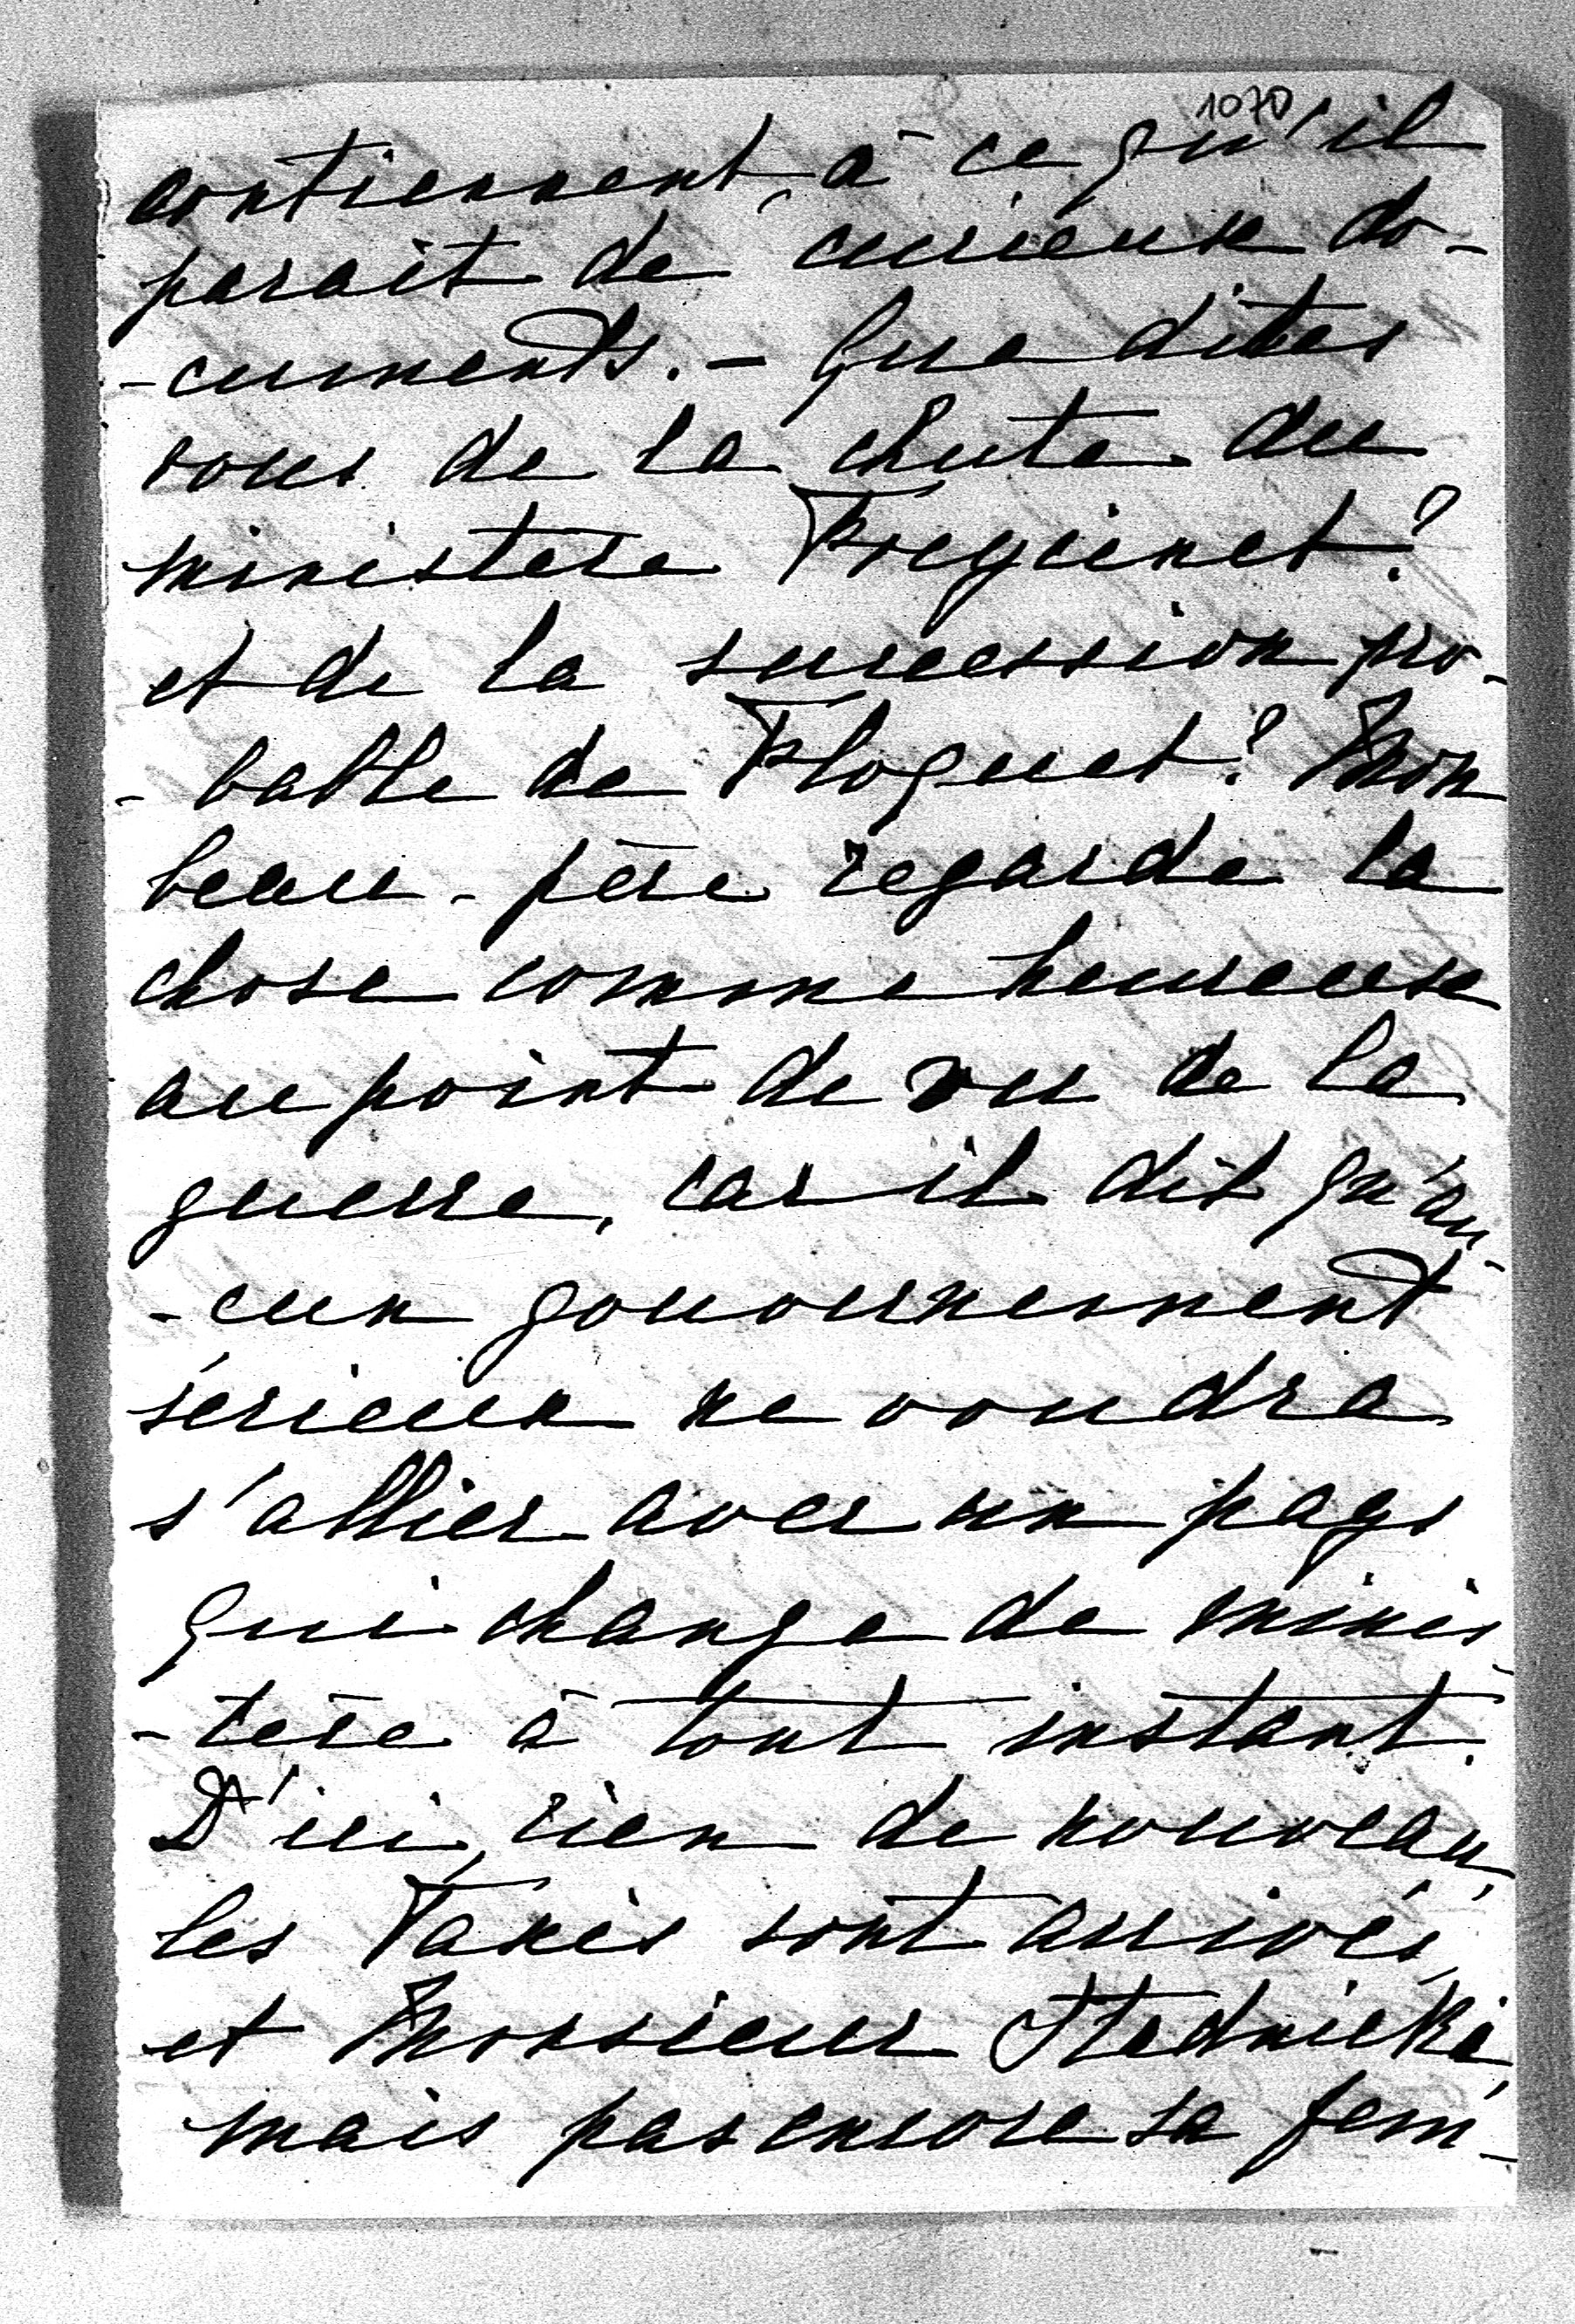 1070
contiennent, à ce qu'il
parait de curieux do-
-cuments. - Que dites
vous de la chute du
ministere Freycinet?
et de la succession pro-
-bable de Floquet? Mon
beau-père regarde la
chose comme heureuse
au point de vu de la
guerre, car il dit qu'au-
-cun gouvernement
sérieux ne voudra
s'allier avec un pays
qui change de minis-
-tère à tout instant.
D'ici, rien de nouveau,
les Taxis sont arrivés,
et Monsieur Stadnicki,
mais pas encore sa fem-